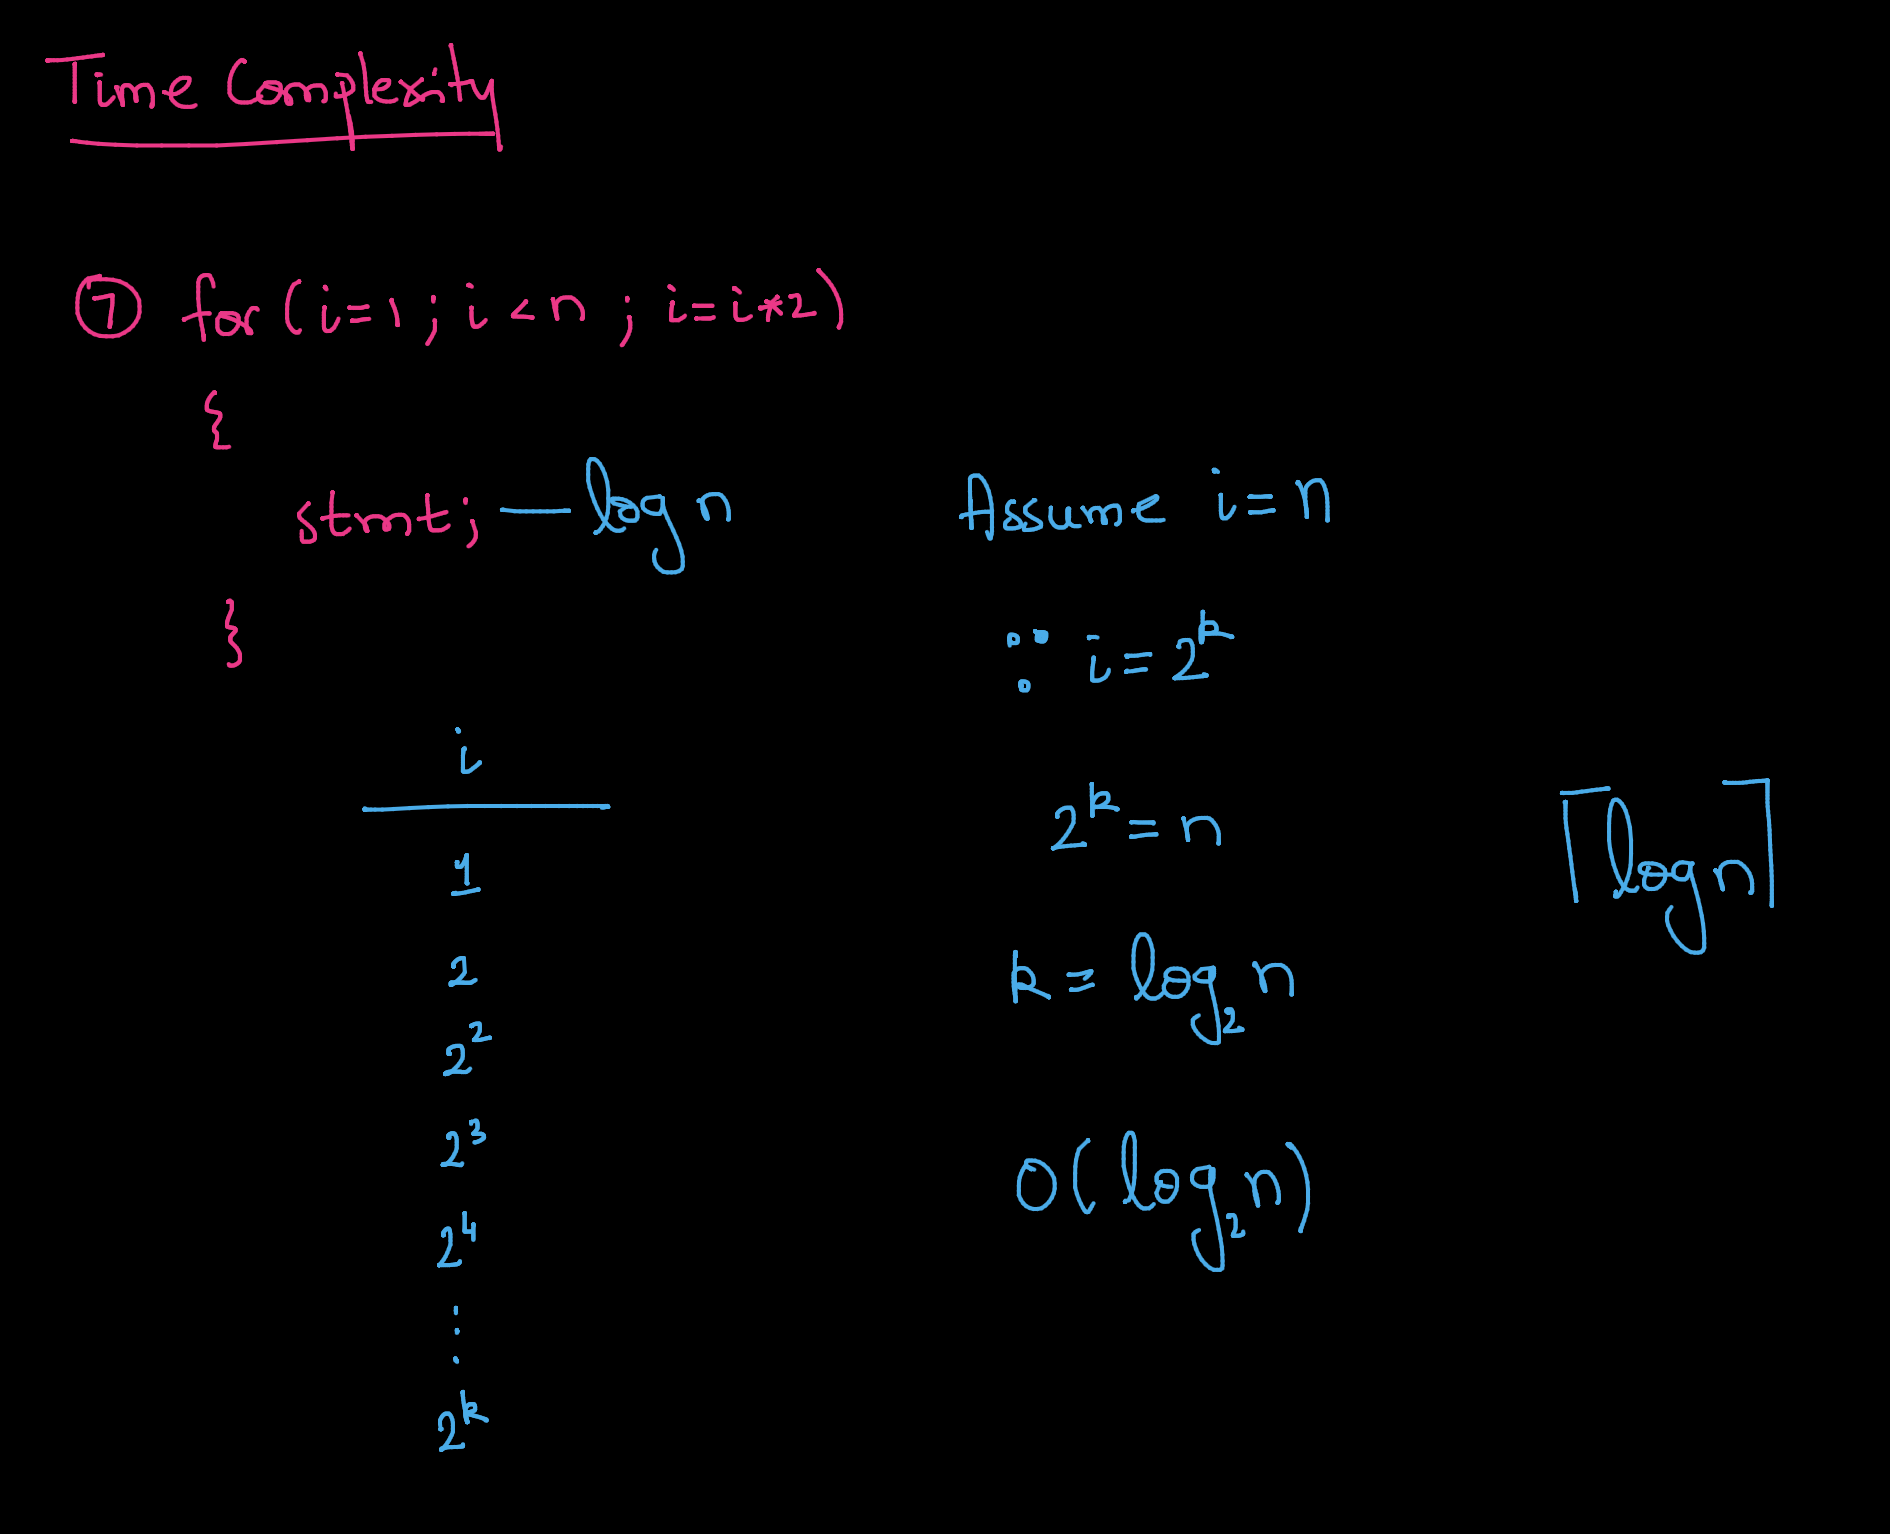 Time Complexity
⑦ for(i=1; i<n; i=i*2)
{
stmt; — log n
}
i
1
2
2²
2³
2⁴
⋮
2ᵏ
Assume i=n
∵ i=2ᵏ
2ᵏ=n
k = log₂ n
O(log₂ n)
⌈log n⌉